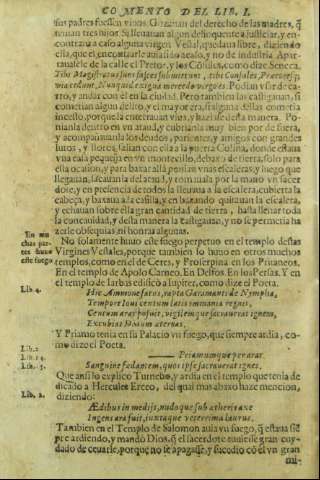 COMENTO DEL LIB. I.
sus padres fuessen viuos. Gozauan del derecho de las madres, q̃
tenian tres hijos. Si lleuauan algun delinquente a justiciar, y en-
contraua a caso alguna virgen Vestal, quedaua libre, diziendo
ella, que el encontrarle auia sido acaso, y no de industria. Apar-
tauasele de la calle el Pretor, y los Cõsules, como dize Seneca,
Tibi Magistratus suos fasces submittunt, tibi Consules, Prætoresq;
via cedunt. Nunquid exigua mercede virgo es. Podian vsar de ca-
rro, y andar con el en la ciudad. Pero tambien las castigauan, si
cometian algun delito, y el mayor era, si alguna dellas cometia
incesto, porque la enterrauan viua, y hazi se desta manera. Po-
nianla dentro en vn ataud, y cubrianla muy bien por de fuera,
y acompañauanla los deudos, parientes, y amigos con grandes
lutos, y lloros, salian con ella a la puerta Colina, donde estaua
vna caia pequeña en vn montezillo, debaxo de tierra, solo para
esta ocasion, y para baxar allà ponian vnas escaleras, y luego que
llegauan, sacauanla del ataud, y tomauala por la mano vn sacer
dote, y en presencia de todos la lleuaua a la escalera, cubierta la
cabeça, y baxaua a la casilla, y en baxando quitauan la escalera,
y echauan sobre ella gran cantidad de tierra, hasta llenar toda
la concauidad, y desta manera la castigauan, y no se permitia ha
zerle obsequias, ni honras algunas.
En muchas partes huuo este fuego
No solamente huuo este fuego perpetuo en el templo destas
Virgines Vestales, porque tambien lo huuo en otros muchos
templos, como en el de Ceres, y Proserpina en los Prutaneos.
En el templo de Apolo Carneo. En Delfos. En los Persas. Y en
el templo de Iarbas edificò a Iupiter, como dize el Poeta.
Lib. 4.
Hic Ammone satus, rapta Garamantide Nympha,
Templa Ioui centum latis immania regnis,
Centum aras posuit, vigilemque sacrauerat ignem,
Excubias Diuum æternas.
Y Priamo tenia en su Palacio vn fuego, que siempre ardia, co-
mo dize el Poeta.
Lib. 2.
Priamumque per aras
Sanguine fœdantem, quos ipse sacrauerat ignes.
Que ansi lo explico Turnebo, y ardia en el templo que tenia de
dicado a Hercules Erceo, del qual mas abaxo haze mencion,
diziendo:
Lib. 2.
Ædibus in medijs, nudoque sub ætheris axe
Ingens ara fuit, iuxtaque veterrima laurus.
Tambien en el Templo de Salomon auia vn fuego, q̃ estaua siẽ
pre ardiendo, y mandò Dios, q̃ el sacerdote tuuiesse gran cuy-
dado de ceuarle, porque no se apagasse, y sucedio cõ el vn gran
mi-